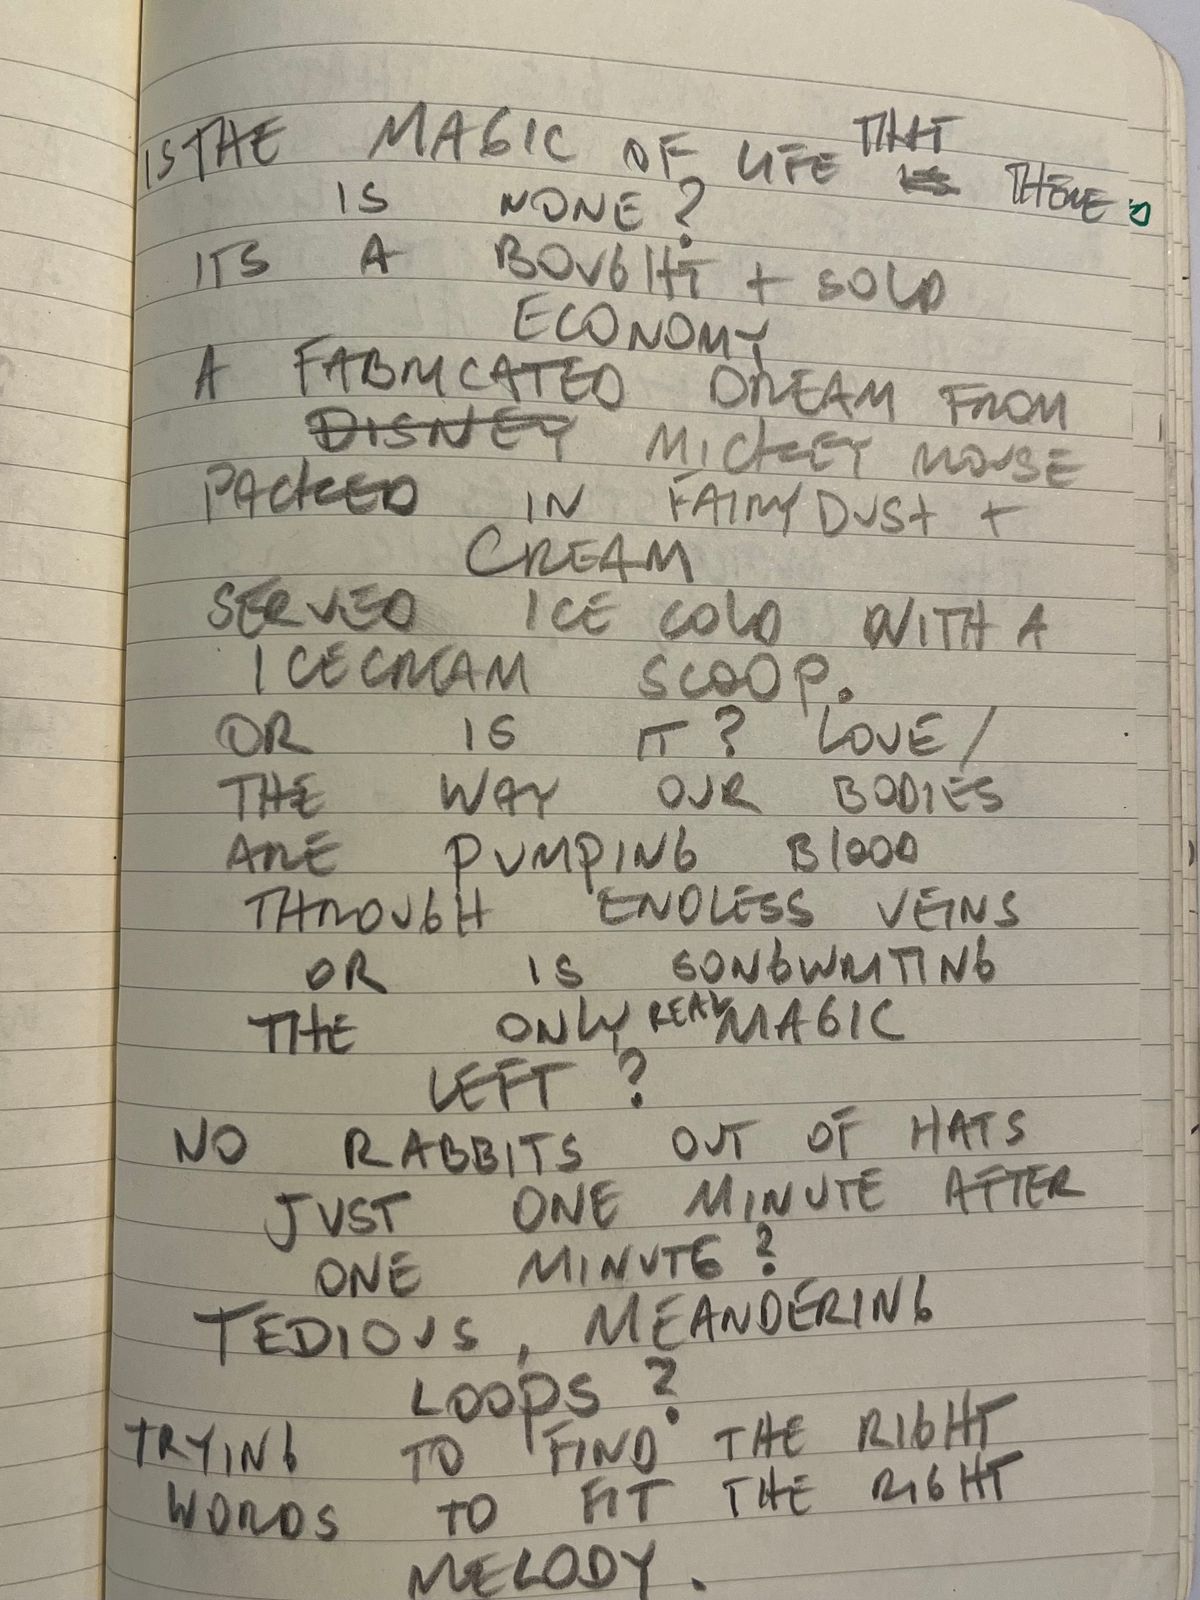 IS THE MAGIC OF LIFE THAT THERE
IS NONE?
ITS A BOUGHT + SOLD
ECONOMY
A FABRICATED DREAM FROM
DISNEY MICKEY MOUSE
PACKED IN FAIRYDUST +
CREAM
SERVED ICE COLD WITH A
ICECREAM SCOOP.
OR IS IT? LOVE/
THE WAY OUR BODIES
ARE PUMPING BLOOD
THROUGH ENDLESS VEINS
OR IS SONGWRITING
THE ONLY REAL MAGIC
LEFT?
NO RABBITS OUT OF HATS
JUST ONE MINUTE AFTER
ONE MINUTE?
TEDIOUS, MEANDERING
LOOPS?
TRYING TO FIND THE RIGHT
WORDS TO FIT THE RIGHT
MELODY.